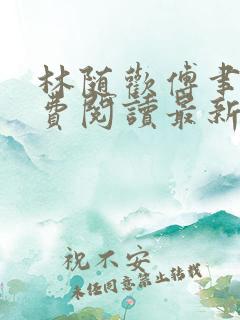 林随歡傅書
費閱讀最新
祝不安
未经同意禁止转载